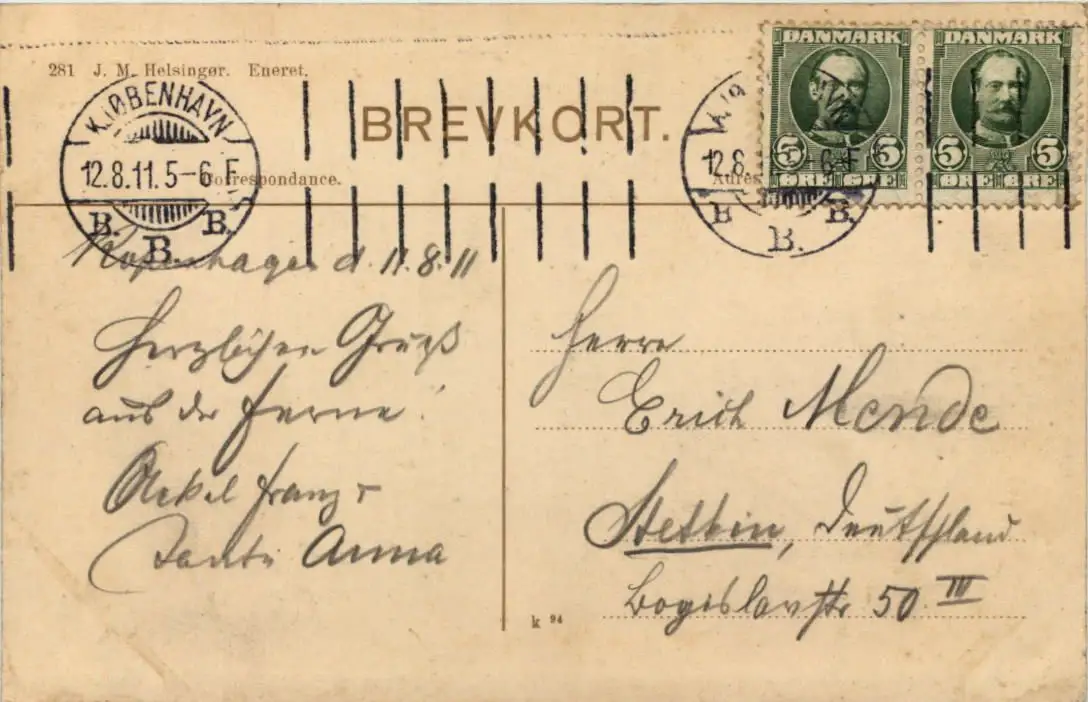 281 J. M. Helsingør. Eneret.
DANMARK
DANMARK
5 5
ØRE ØRE
5 5
ØRE ØRE
KJØBENHAVN
12.8.11.5-6 F
B. B. B.
BREVKORT.
Correspondance.
KJØ
12.8
6 F
B B. B.
Kopenhagen d. 11.8.11
Herzlichen Gruß
aus der Ferne!
Onkel Franz &
Tante Anna
Herrn
Erich Mende
Stettin, Deutschland
Bogislavstr 50 III
k 94